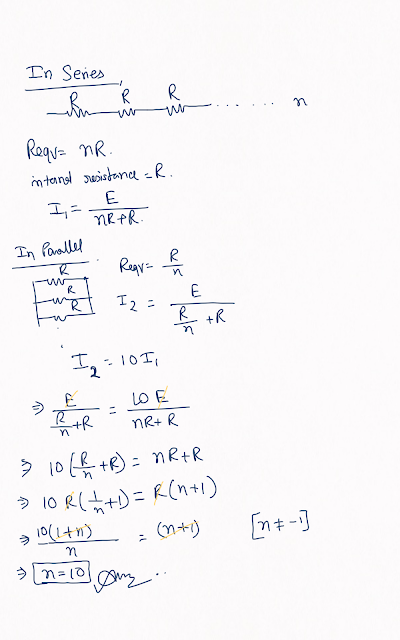 In Series
R R R
........ n
Reqv = nR.
internal resistance = R.
I₁ = E/(nR+R).
In Parallel
R
R
R
Reqv = R/n
I₂ = E/(R/n + R)
I₂ = 10 I₁
⇒ E/(R/n + R) = 10 E/(nR + R)
⇒ 10 (R/n + R) = nR + R
⇒ 10 R (1/n + 1) = R (n+1)
⇒ 10(1+n)/n = (n+1) [n ≠ -1]
⇒ n = 10 Ans ..